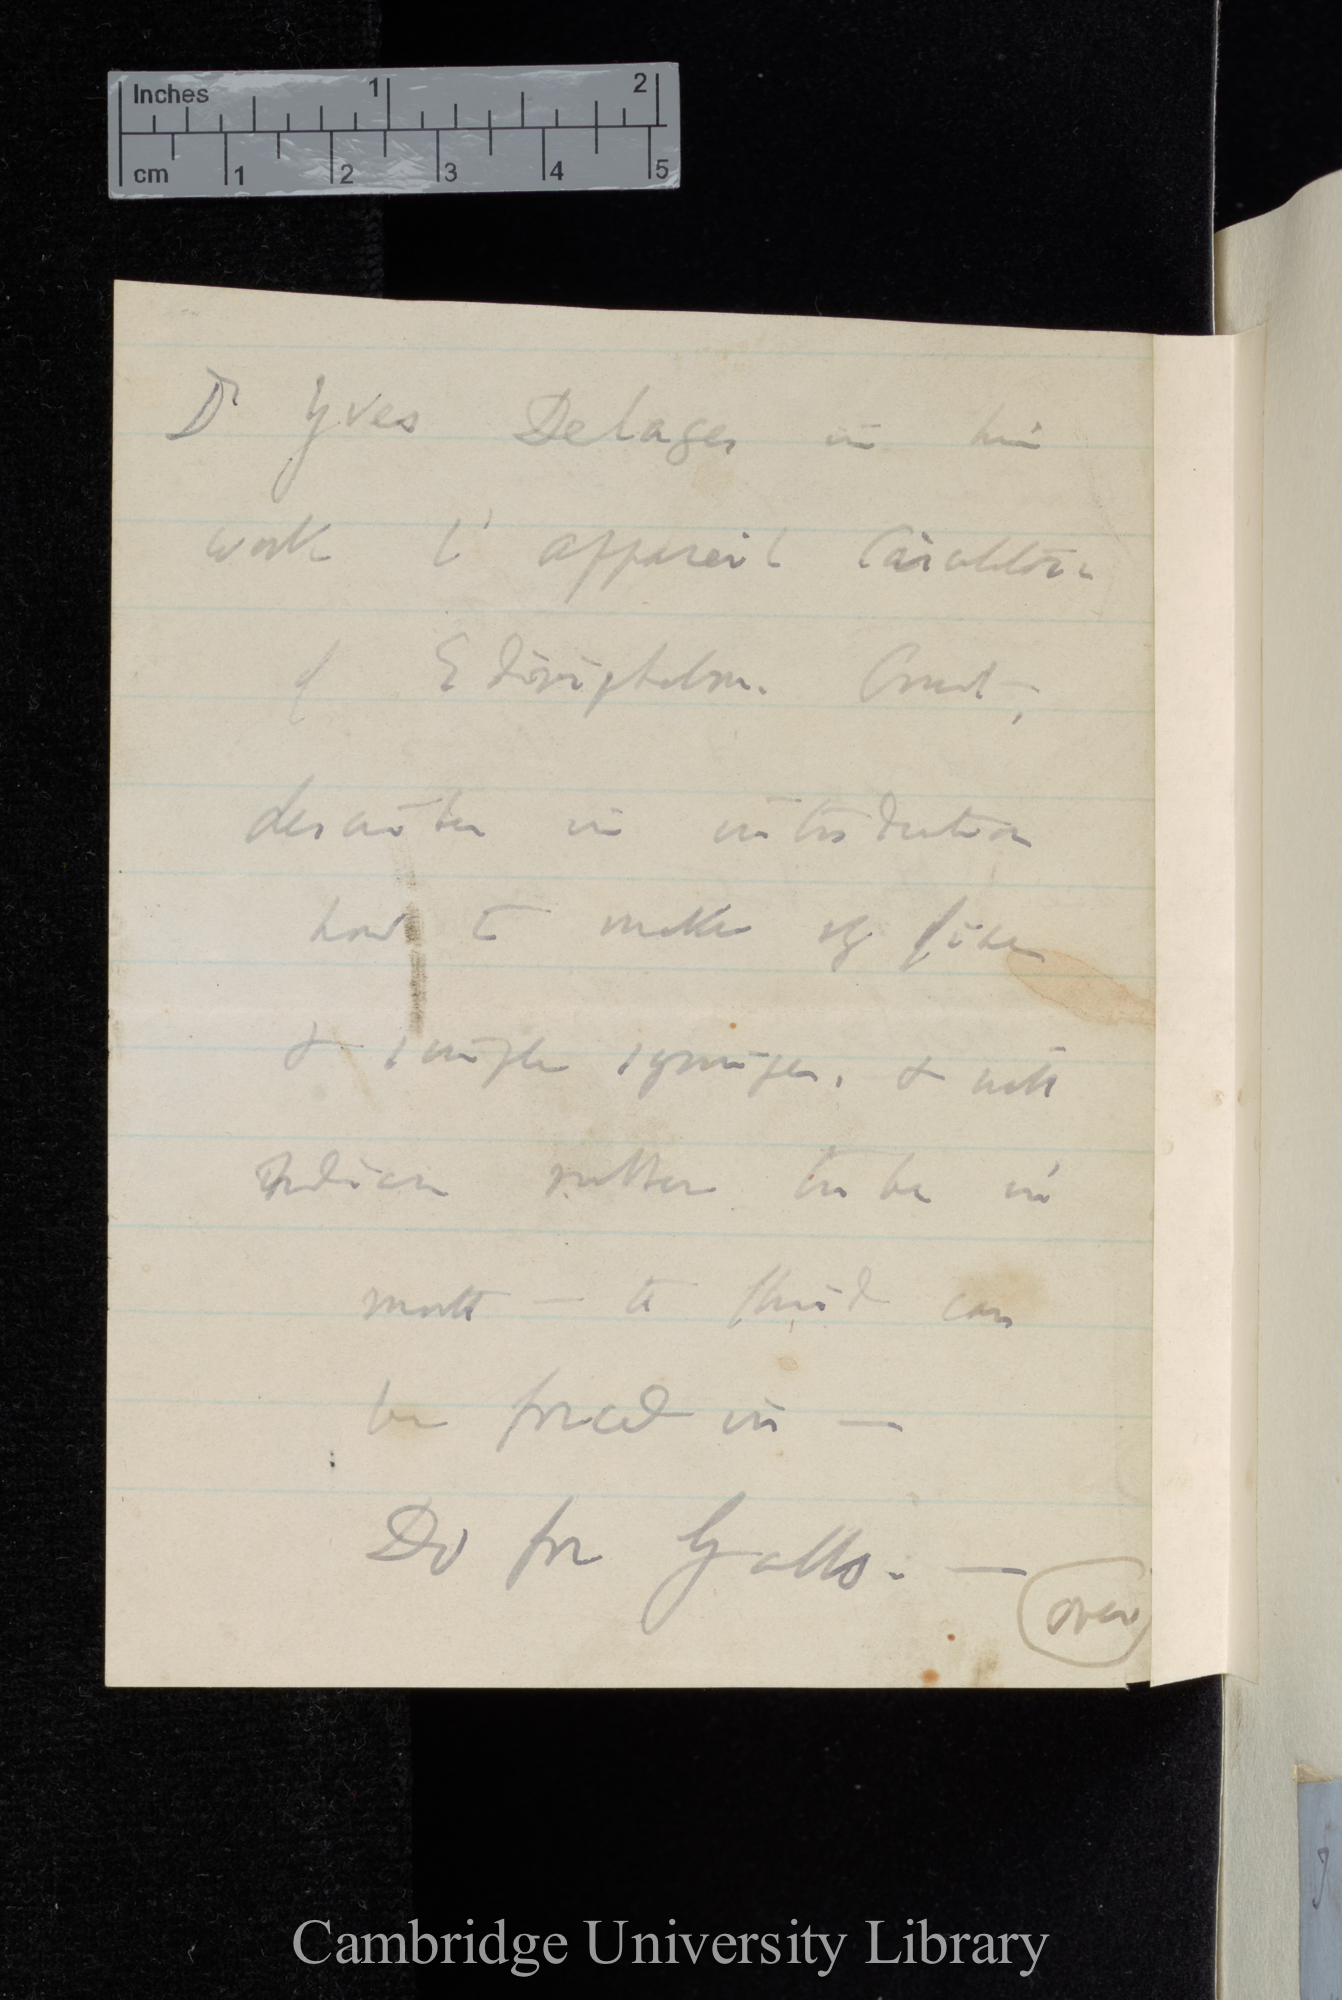 Inches 1 2
cm 1 2 3 4 5
Dr Yves Delages in his
work l' appareil Circulatoire
of Edriophthalm. Crust,
describes in introduction
how to make vy fine
& simple syringes, & with
Indian rubber tube in
mouth — the fluid can
be forced in —
Do for Galls. —
over
Cambridge University Library